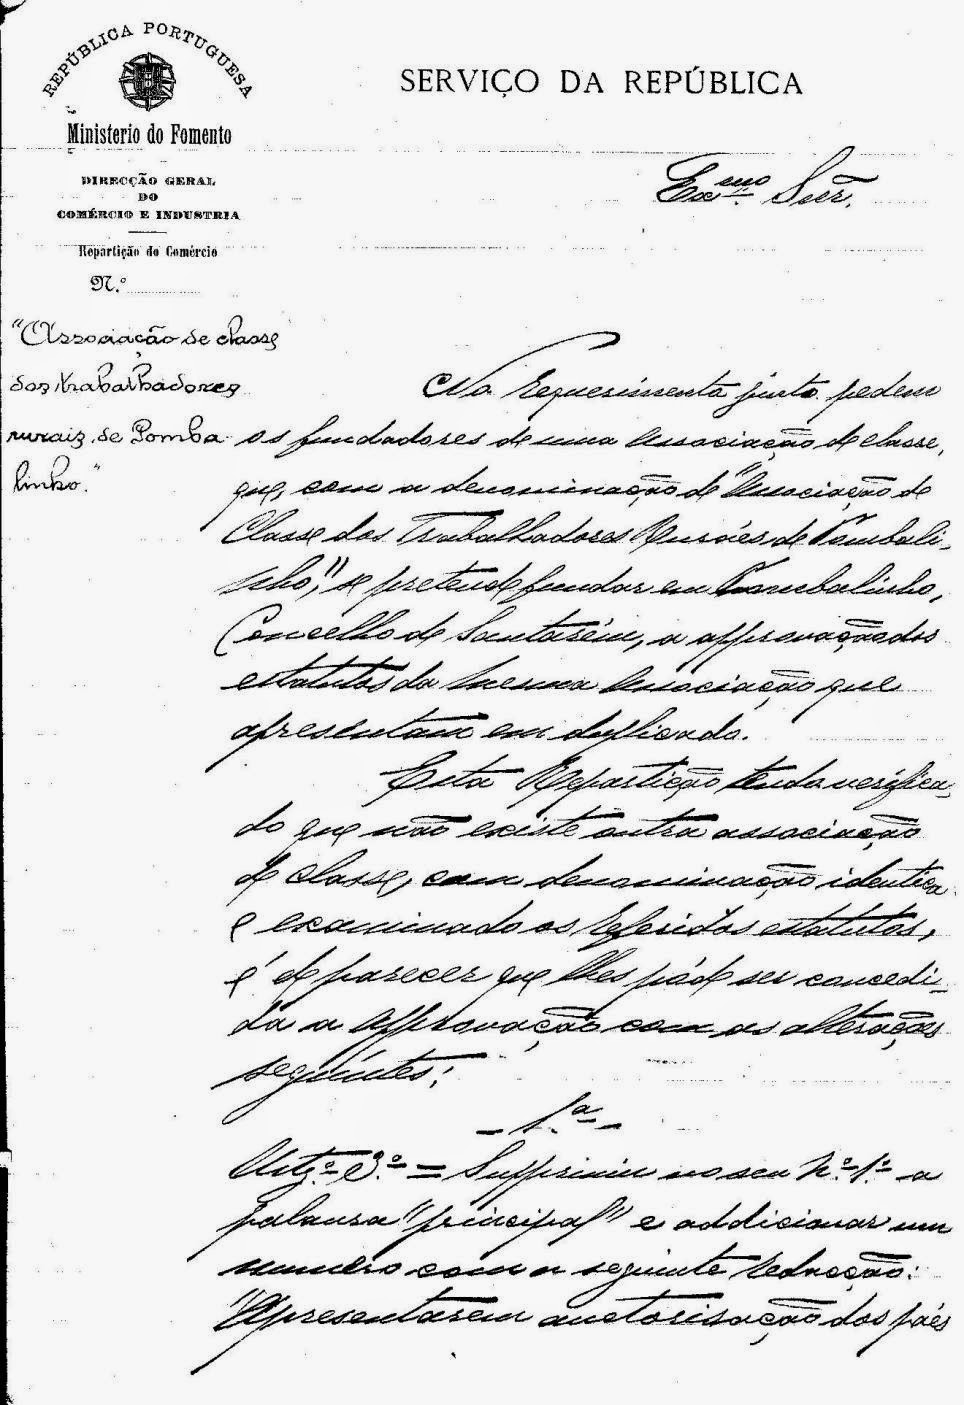 REPÚBLICA PORTUGUESA
SERVIÇO DA REPÚBLICA
Ministerio do Fomento
DIRECÇÃO GERAL
DO
COMÉRCIO E INDUSTRIA
Repartição do Comércio
N.º
Exmo. Snr.
"Associação de classe
dos trabalhadores
ruraiz de Pomba
linho."
No requerimento junto pedem
os fundadores de uma associação de classe,
que, com a denominação de "Associação de
Classe dos Trabalhadores Ruraes de Pombali-
nho," se pretende fundar em Pombalinho,
Concelho de Santarém, a approvação dos
estatutos da mesma associação que
apresentam em duplicado.
Esta Repartição tendo verifica-
do que não existe outra associação
de classe, com denominação identica
e examinado os referidos estatutos,
é de parecer que lhes póde ser concedi-
da a approvação com as alterações
seguintes:
- 1.ª -
Artº 3º = Supprimir no seu Nº 1º a
palavra "principal" e addicionar um
numero com a seguinte redacção:
"Apresentarem auctorisação dos páes